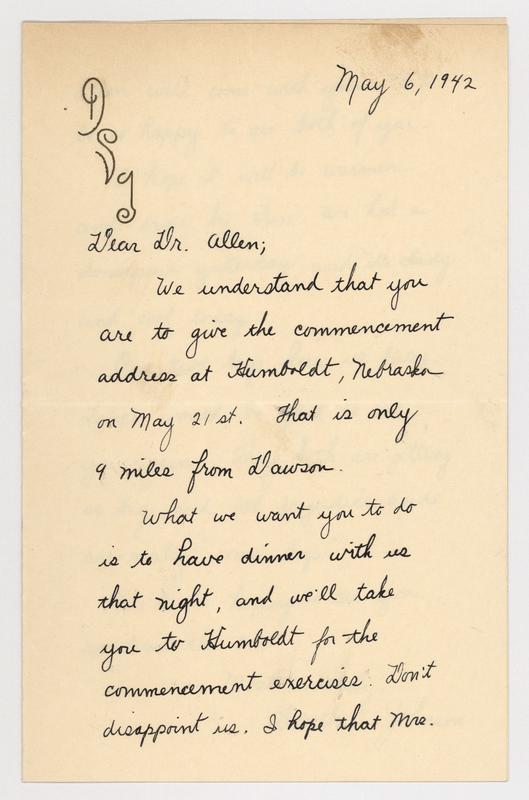 May 6, 1942
DSG
Dear Dr. Allen;
We understand that you
are to give the commencement
address at Humboldt, Nebraska
on May 21st. That is only
9 miles from Dawson.
What we want you to do
is to have dinner with us
that night, and we'll take
you to Humboldt for the
commencement exercises. Don't
disappoint us. I hope that Mrs.